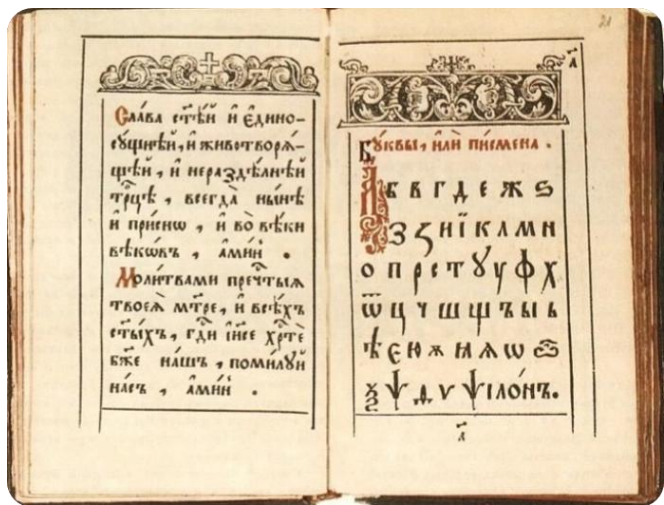 Сла́ва ст҃ѣ́й и҆ є҆ди́но-
сꙋ́щнѣй, и҆ животворѧ́-
щей, и҆ нераздѣ́лнѣй
трⷪ҇цѣ, всегда̀ ны́нѣ
и҆ при́снѡ, и҆ во вѣ́ки
вѣкѡ́въ, а҆ми́нь.
Моли́твами пречⷭ҇тыѧ
твоеѧ̀ мт҃ре, и҆ всѣ́хъ
ст҃ы́хъ, гдⷭ҇и і҆и҃се хрⷭ҇тѐ
бж҃е на́шъ, поми́лꙋй
на́съ, а҆ми́нь.
21
҂а
Бꙋ́квы, и҆лѝ писмена̀.
А б в г д е ж ѕ
з ꙁ и ї к л м н
о п р с т ꙋ у ф х
ѿ ц ч ш щ ъ ы ь
ѣ є ю ѫ ꙗ ѧ ѡ
ѯ ѱ ѳ ѵ ѱїло́нъ.